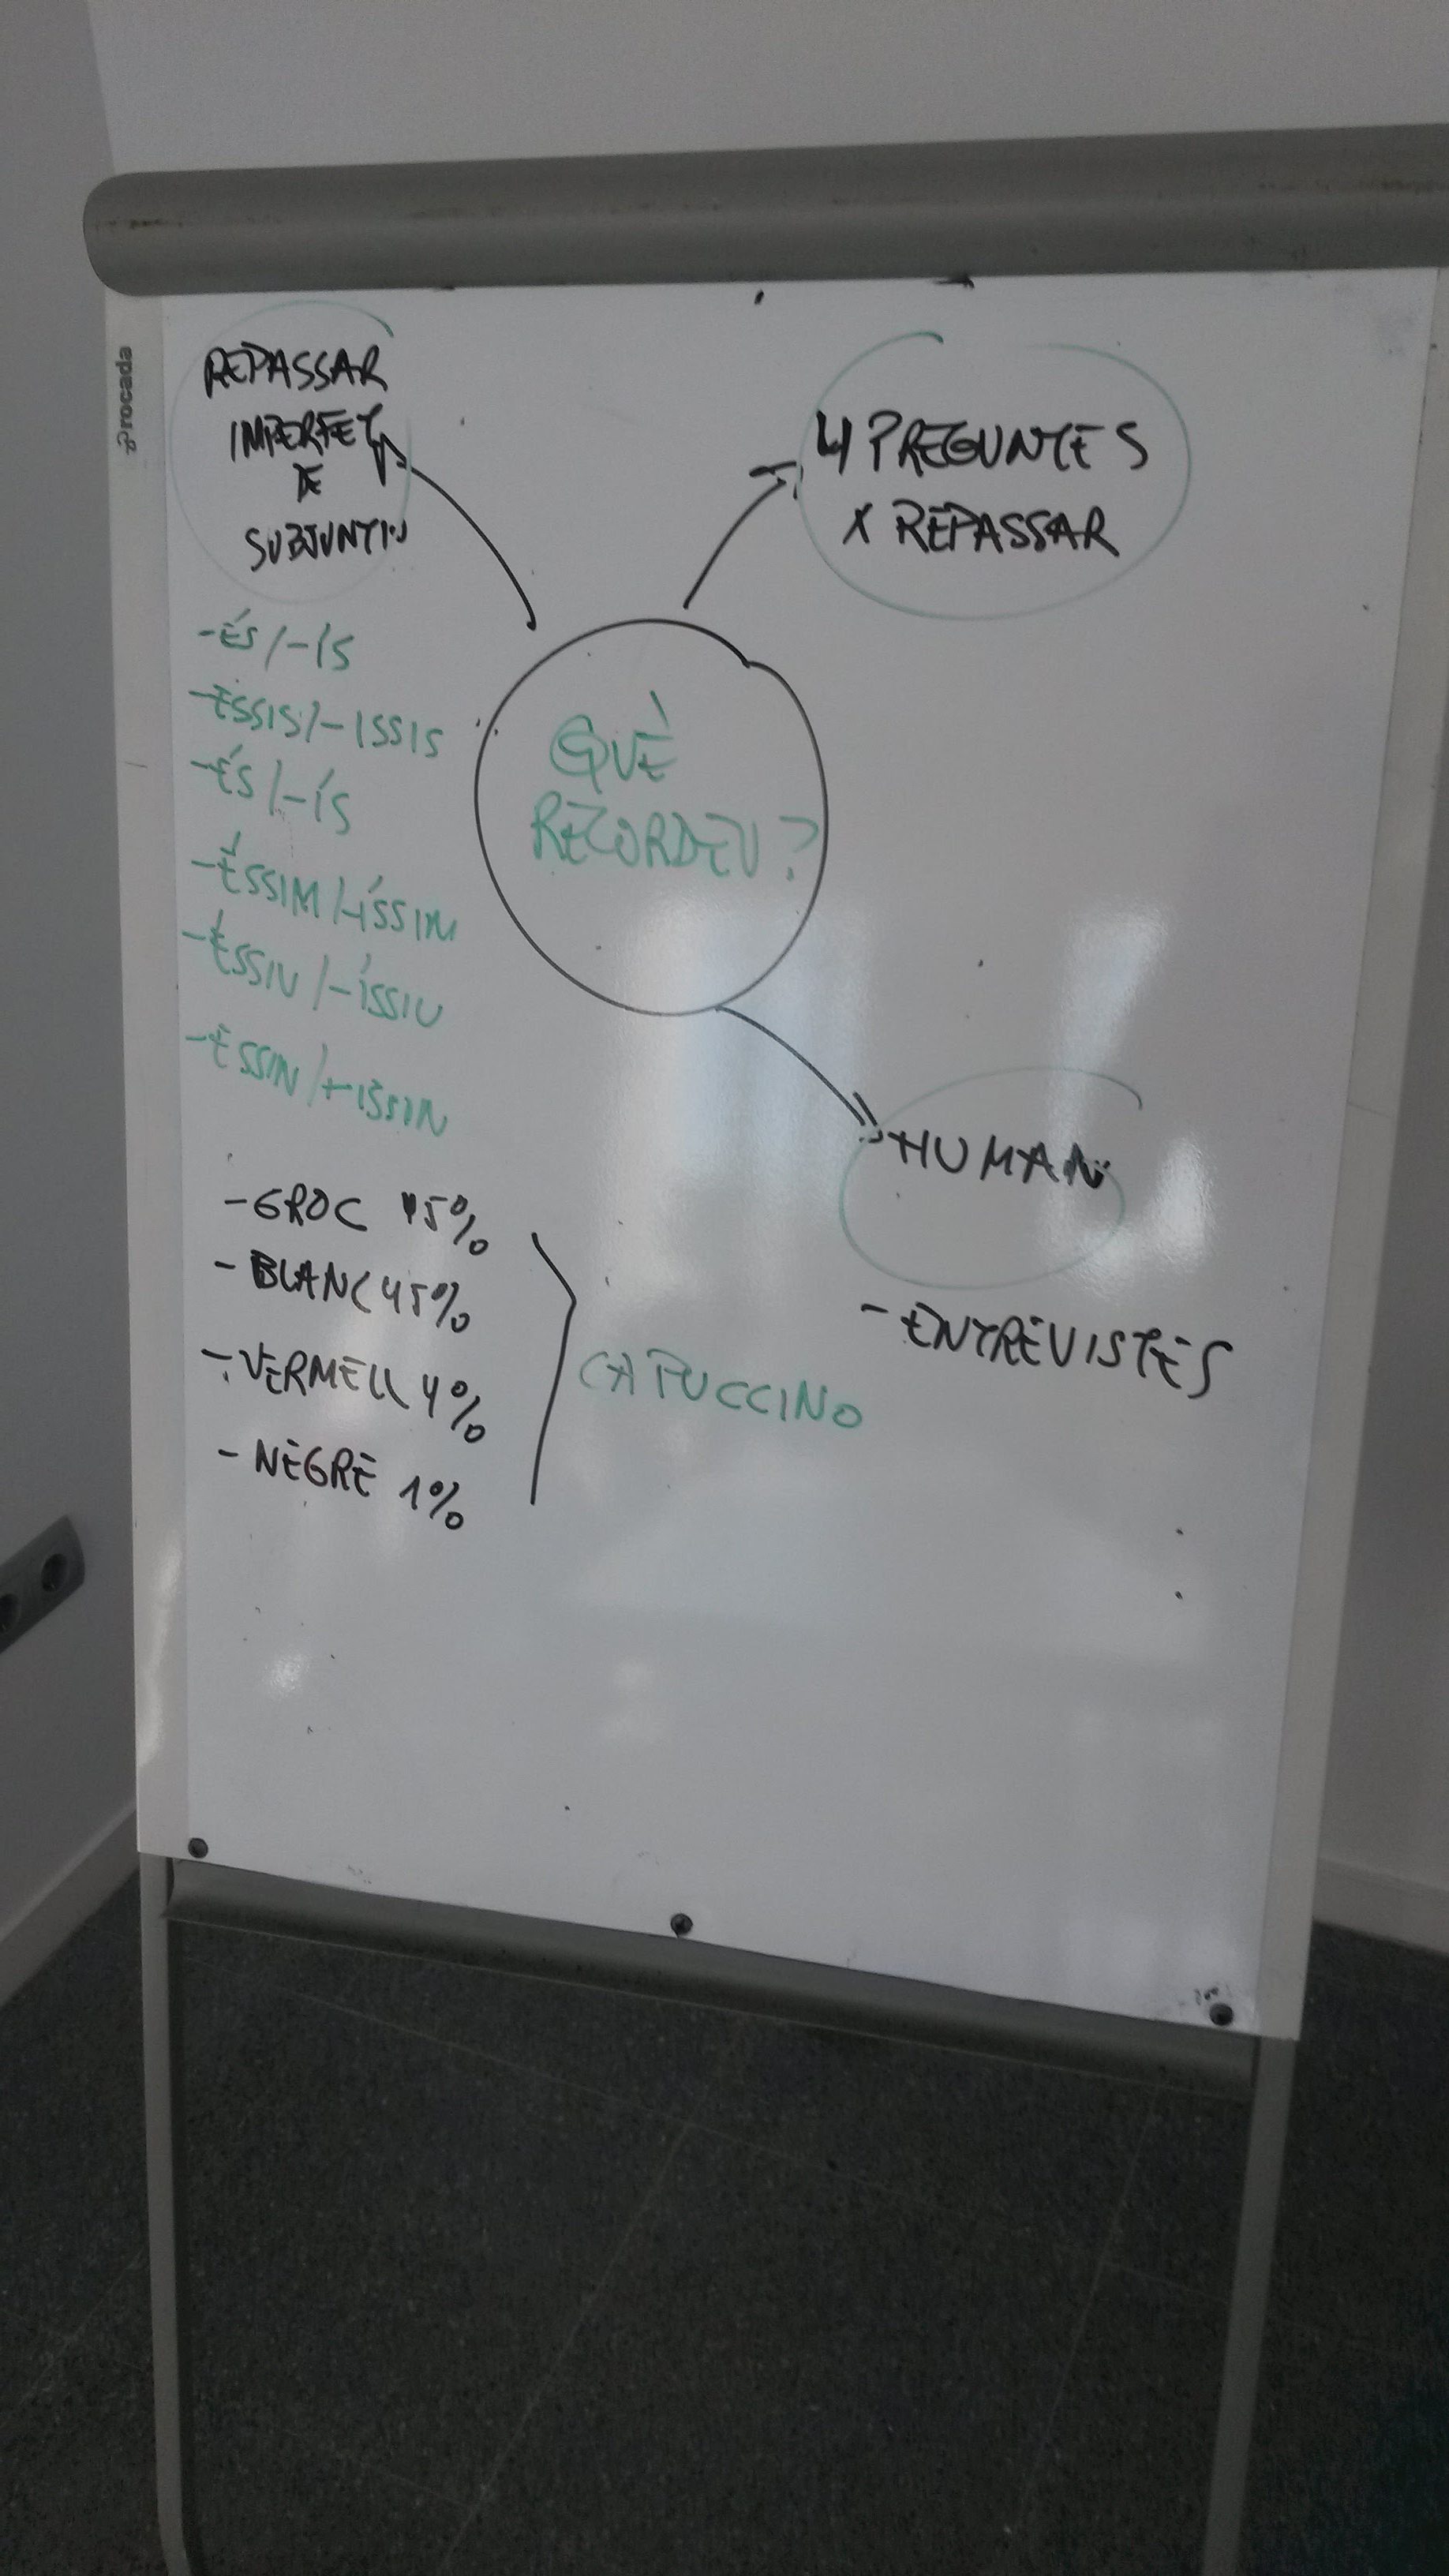 rocada
REPASSAR
IMPERFET
DE
SUBJUNTIU
4 PREGUNTES
X REPASSAR
QUÈ
RECORDEU?
-ÉS/-ÍS
-ESSIS/-ISSIS
-ÉS/-ÍS
-ÉSSIM/-ÍSSIM
-ÉSSIU/-ÍSSIU
-ESSIN/-ISSIN
HUMAN
- ENTREVISTES
- GROC 45%
- BLANC 45%
- VERMELL 4%
- NEGRE 1%
CAPUCCINO